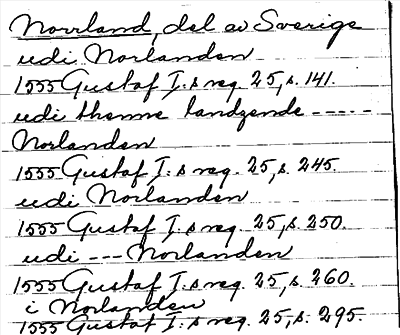 Norrland, del av Sverige
udi Norlanden
1555 Gustaf I:s reg. 25, s. 141.
udi thenne landzende -----
Norlanden
1555 Gustaf I:s reg. 25, s. 245.
udi Norlanden
1555 Gustaf I:s reg. 25, s. 250.
udi --- Norlanden
1555 Gustaf I:s reg. 25, s. 260.
i Norlanden
1555 Gustaf I:s reg. 25, s. 295.